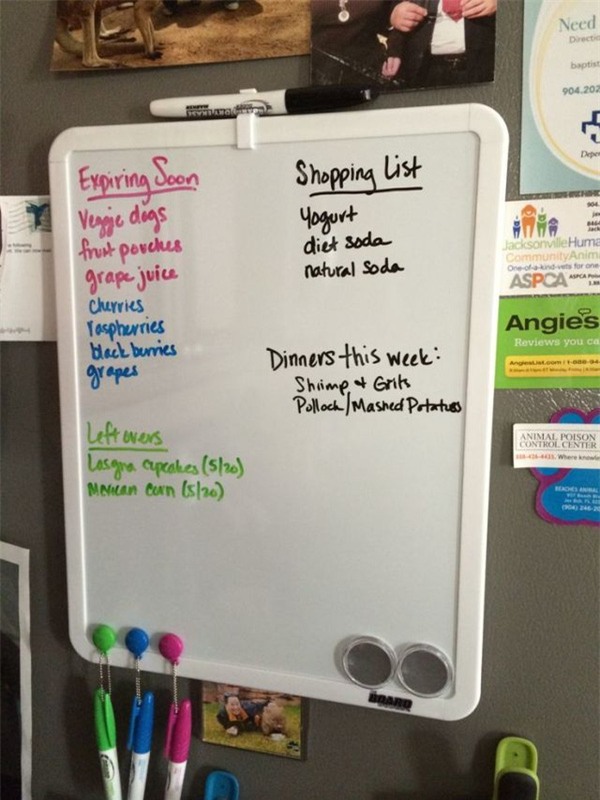 Expiring Soon
Veggie dogs
fruit pouches
grape juice
cherries
raspberries
blackberries
grapes
Leftovers
Lasgna cupcakes (5/20)
Mexican corn (5/20)
Shopping List
Yogurt
diet soda
natural soda
Dinners this week:
Shrimp & Grits
Pollock/Mashed Potatoes
THE BOARD
DRY ERASE
Need
Directi
baptist
904.202
Jacksonville Huma
Community Anim
One-of-a-kind-vets for one
ASPCA
Angie's
Reviews you ca
AngiesList.com | 1-888-94
ANIMAL POISON
CONTROL CENTER
888-426-4435. Where knowle
BEACHES ANIMAL
(904) 246-20